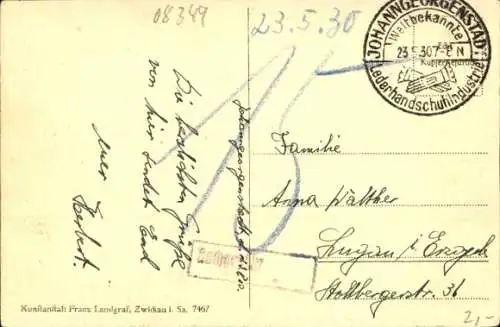 08349
23.5.30
JOHANNGEORGENSTADT
Weltbekannte
23.5.30.7-8 N
Lederhandschuhindustrie
Johanngeorgenstadt, d. 23.5.30.
Die herzlichsten Grüße
von hier sendet Euch
Euer Herbert.
15
Familie
Anna Walther
Lugau i/ Erzgeb.
Stollbergerstr. 31
Kunstanstalt Franz Landgraf, Zwickau i. Sa. 7467
2,-